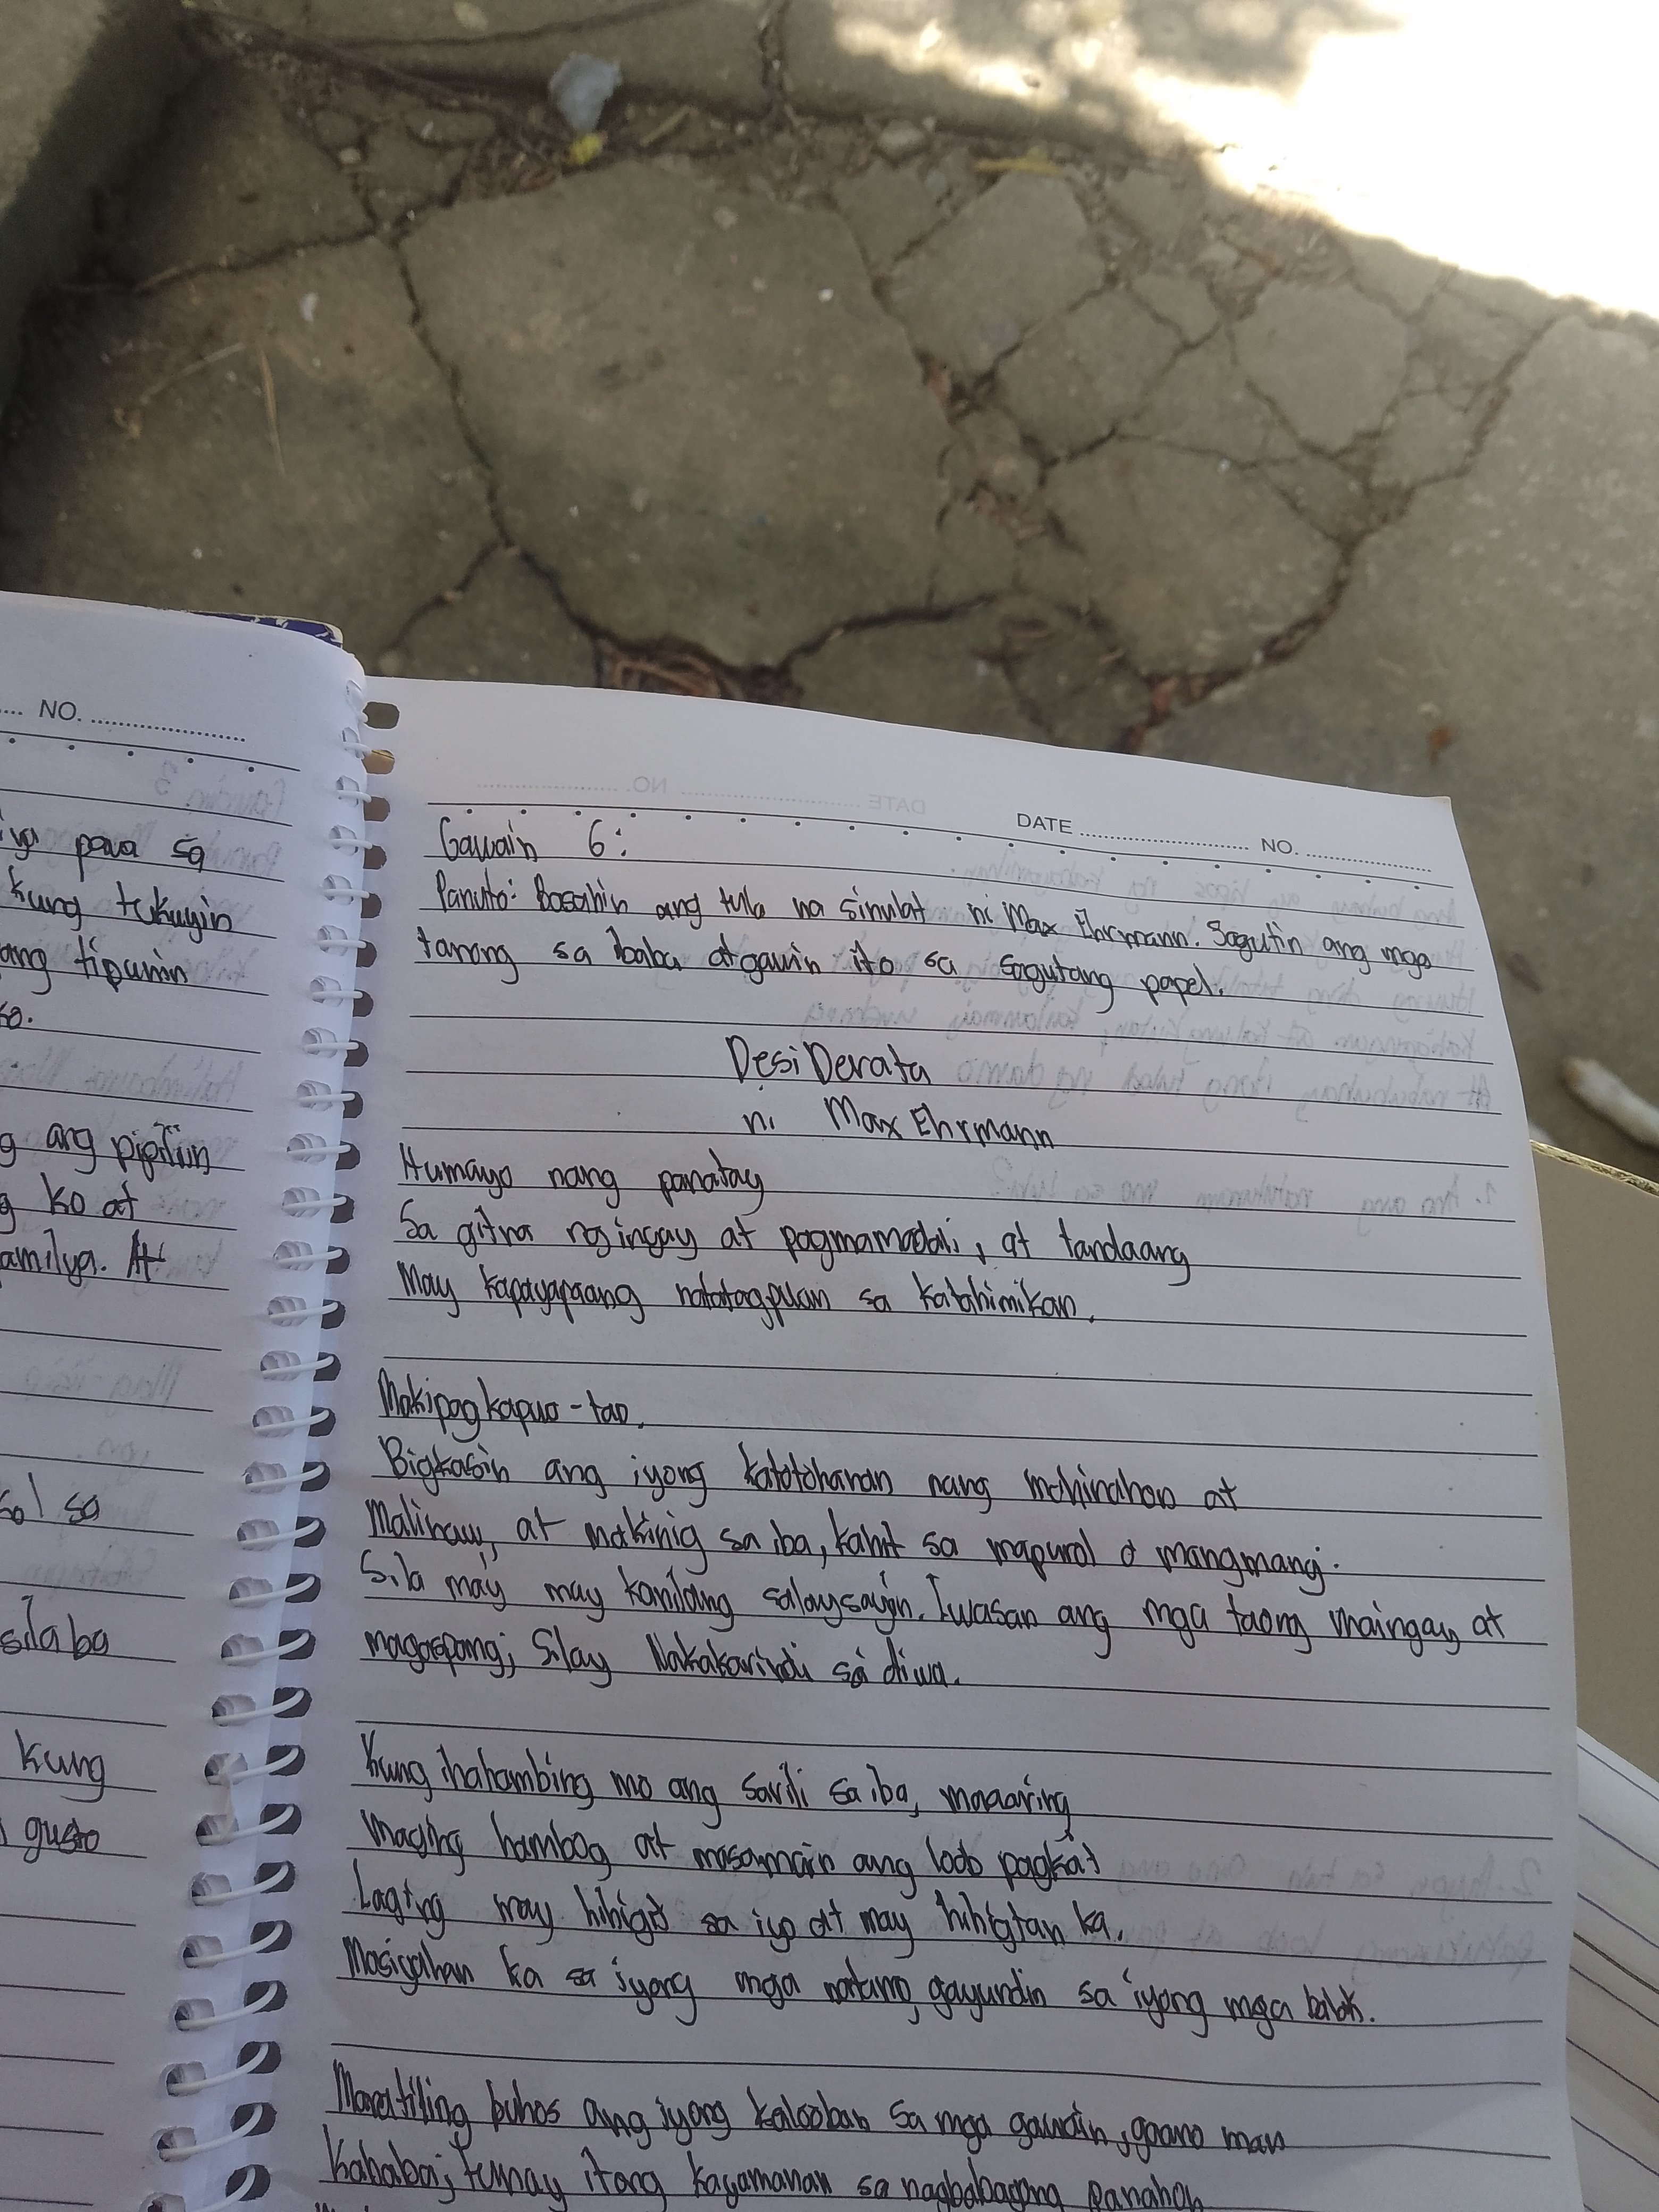 NO.
para sa
kung tukuyin
ang tipunin
ang pigilin
ko at
amilya. At
sa
silaba
kung
gusto
DATE NO.
Gawain 6:
Panuto: Basahin ang tula na sinulat ni Max Ehrmann. Sagutin ang mga
tanong sa ibaba at gawin ito sa sagutang papel.
DesiDerata
ni Max Ehrmann
Humayo nang panatag
Sa gitna ng ingay at pagmamadali, at tandaang
May kapayapaang natatagpuan sa katahimikan.
Makipagkapwa-tao.
Bigkasin ang iyong katotohanan nang mahinahon at
Malinaw, at makinig sa iba, kahit sa mapurol o mangmang.
Sila may may kanilang salaysayin. Iwasan ang mga taong maingay at
magaspang; Silay Nakakarindi sa diwa.
Kung ihahambing mo ang sarili sa iba, maaaring
Maging hambog at masamain ang loob pagkat
Laging may hihigit sa iyo at may hihigtan ka.
Masiyahan ka sa iyong mga natamo, gayundin sa iyong mga balak.
Manatiling buhos ang iyong kalooban sa mga gawain, gaano man
Kababa; tunay itong kayamanan sa nagbabagong panahon